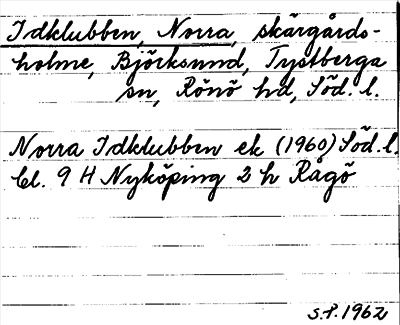 Idklubben, Norra, skärgårds-
holme, Björksund, Tystberga
sn, Rönö hd, Söd. l.
Norra Idklubben ek (1960) Söd. l.
bl. 9 H Nyköping 2 h Rågö
S.P. 1962